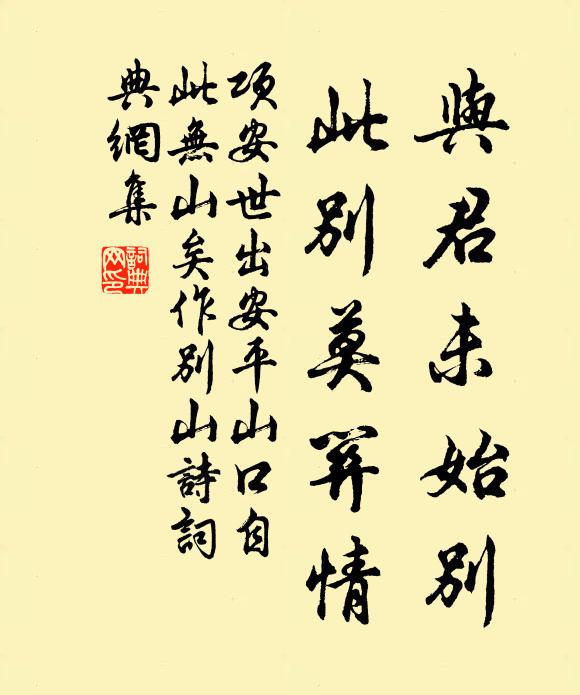 與君未始別
此別莫羿情
項安世出安平山口自
此無山矣作別山詩詞
典網集
詞典
网印